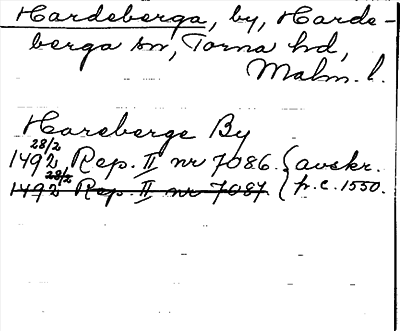 Hardeberga, by, Harde-
berga sn, Torna hd,
Malm. l.
Hareberge By
28/2
1492 Rep. II nr 7086. { avskr.
28/2
1492 Rep. II nr 7087. { fr. c. 1550.